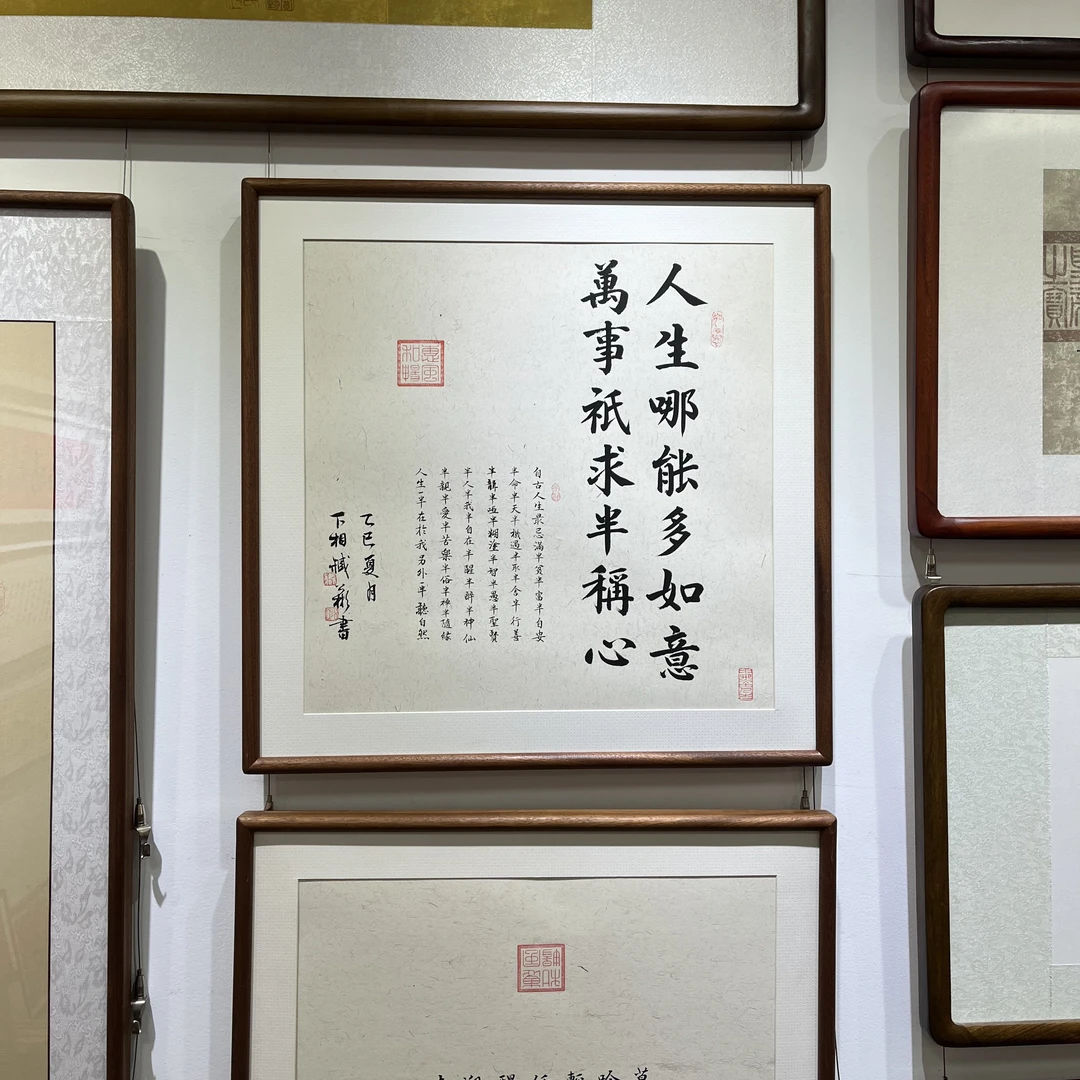 人生哪能多如意
萬事祇求半稱心
自古人生最忌滿半貧半富半自安
半命半天半機遇半取半舍半行善
半聾半啞半糊塗半智半愚半聖賢
半人半我半自在半醒半醉半神仙
半親半愛半苦樂半俗半禪半隨緣
人生一半在於我另外一半聽自然
乙巳夏月
下相臧
書
惠風和暢